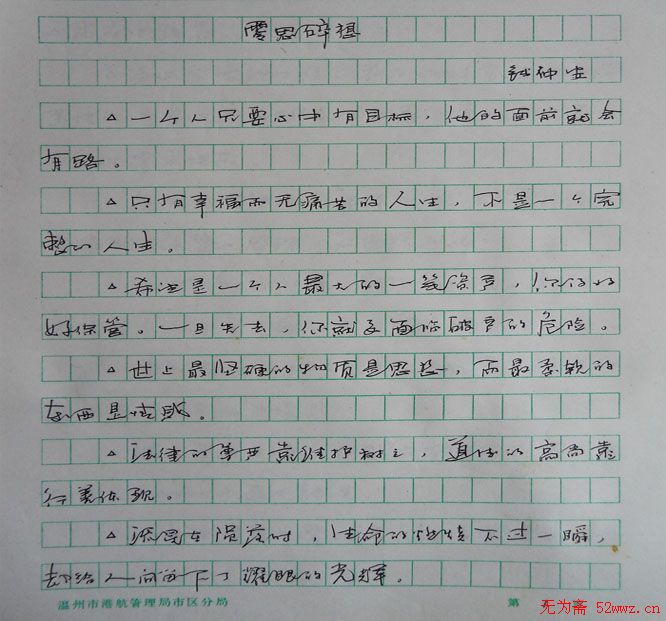 零思碎想
钟生
△一个人只要心中有目标，他的面前就会
有路。
△只有幸福而无痛苦的人生，不是一个完
整的人生。
△希望是一个人最大的一笔资产，你得好
好保管。一旦失去，你就要面临破产的危险。
△世上最坚硬的物质是思想，而最柔软的
东西是情感。
△法律的尊严靠维护树立，道德的高尚靠
行美体现。
△流星在陨落时，生命的 不过一瞬，
却给人间留下了耀眼的光辉。
温州市港航管理局市区分局
第
无为斋 52wwz.cn